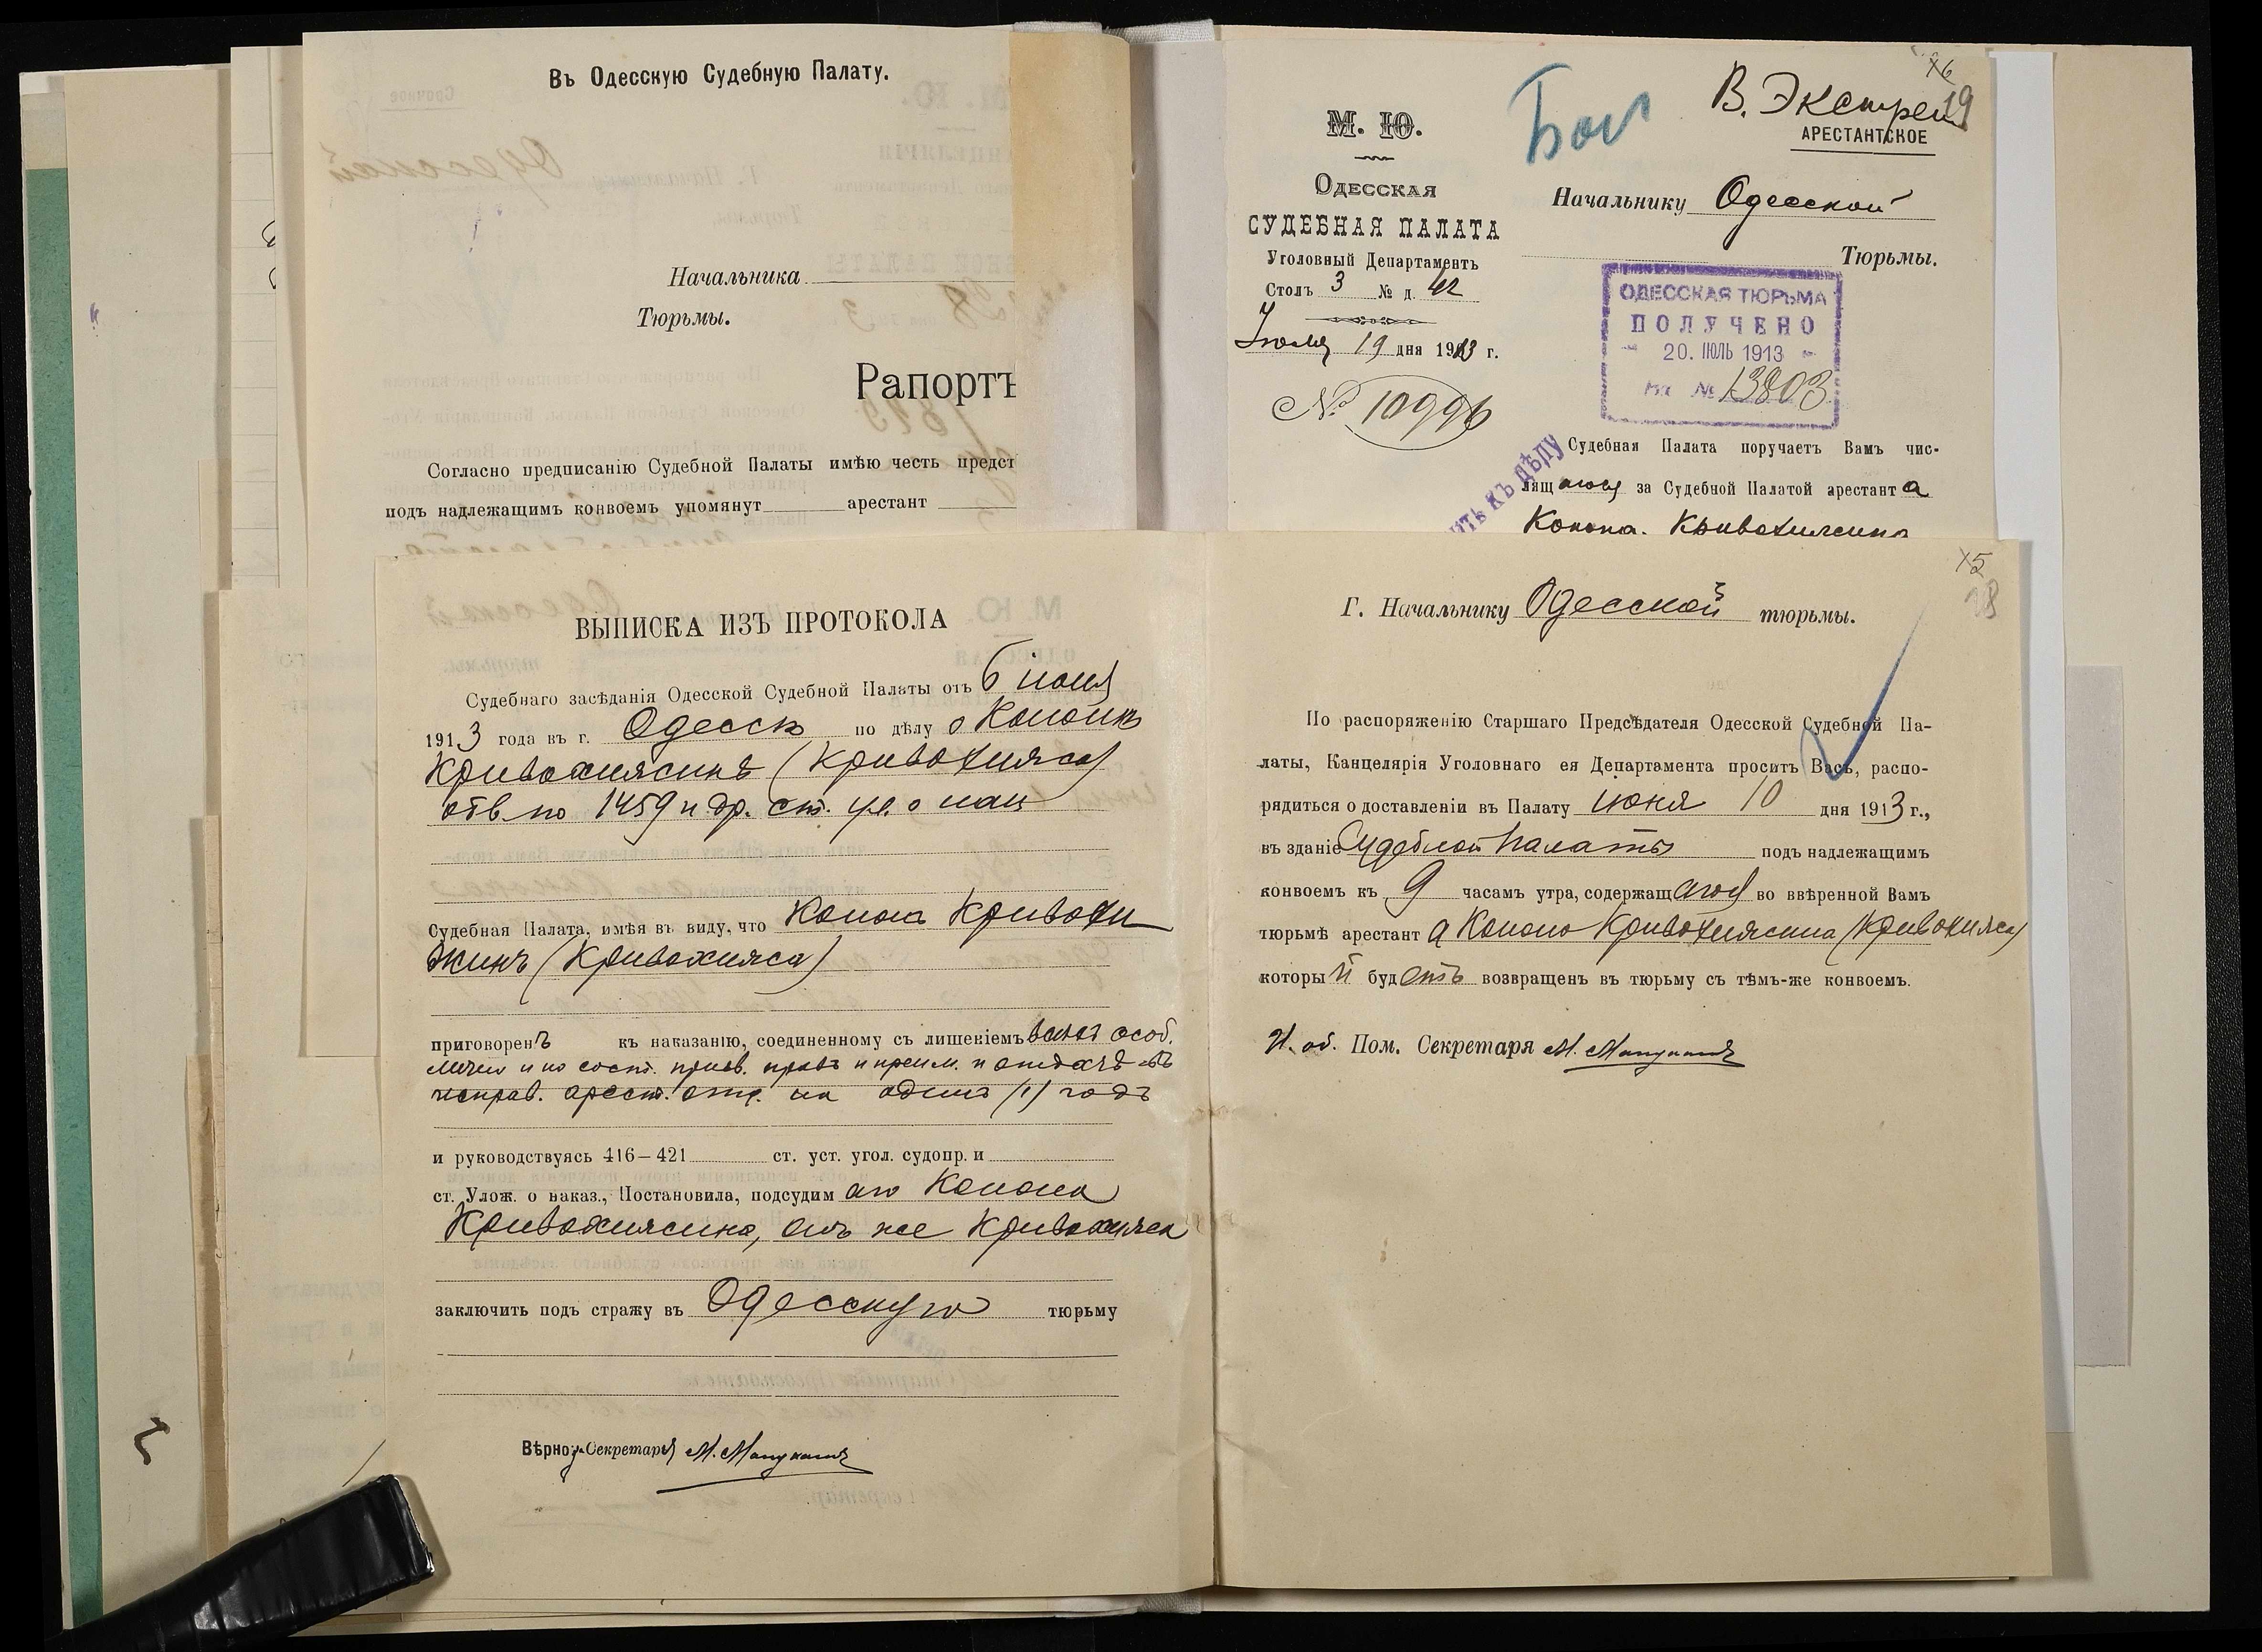 Въ Одесскую Судебную Палату.
Начальника
Тюрьмы.
Рапортъ
Согласно предписанію Судебной Палаты имѣю честь предст
подъ надлежащимъ конвоемъ упомянут арестант
В. Экстрен
19
АРЕСТАНТСКОЕ
М. Ю.
Одесская
СУДЕБНАЯ ПАЛАТА
Уголовный Департаментъ
Столъ 3 № д. 42
Іюля 19 дня 1913 г.
№ 10996
Начальнику Одесской
Тюрьмы.
ОДЕССКАЯ ТЮРЬМА
ПОЛУЧЕНО
20. ІЮЛЬ 1913
Вх № 13803
КЪ ДѢЛУ
Судебная Палата поручаетъ Вамъ чис-
лящагося за Судебной Палатой арестанта
Конона Кривохижсина
ВЫПИСКА ИЗЪ ПРОТОКОЛА
Судебнаго засѣданія Одесской Судебной Палаты отъ 6 іюня
1913 года въ г. Одессѣ по дѣлу о Кононѣ
Кривохижсинѣ (Кривохижса)
обв. по 1459 и др. ст. ул. о нак
Судебная Палата, имѣя въ виду, что Конон Кривохи
жинъ (Кривохижса)
приговоренъ къ наказанію, соединенному съ лишеніемъ всѣхъ особ.
лично и по сост. присв. правъ и преим. и отдачѣ въ
исправ. арест. отд. на одинъ (1) годъ
и руководствуясь 416—421 ст. уст. угол. судопр. и
ст. Улож. о наказ., Постановила, подсудимаго Конона
Кривохижсина, онъ же Кривохижса
заключить подъ стражу въ Одесскую тюрьму
Вѣрно: Секретаря М.
15
Г. Начальнику Одесской тюрьмы.
По распоряженію Старшаго Предсѣдателя Одесской Судебной Па-
латы, Канцелярія Уголовнаго ея Департамента проситъ Васъ, распо-
рядиться о доставленіи въ Палату іюня 10 дня 1913 г.,
въ зданіе Судебной Палаты подъ надлежащимъ
конвоемъ къ 9 часамъ утра, содержащагося во ввѣренной Вамъ
тюрьмѣ арестанта Конона Кривохижсина (Кривохижса)
который будетъ возвращенъ въ тюрьму съ тѣмъ-же конвоемъ.
И. об. Пом. Секретаря М.